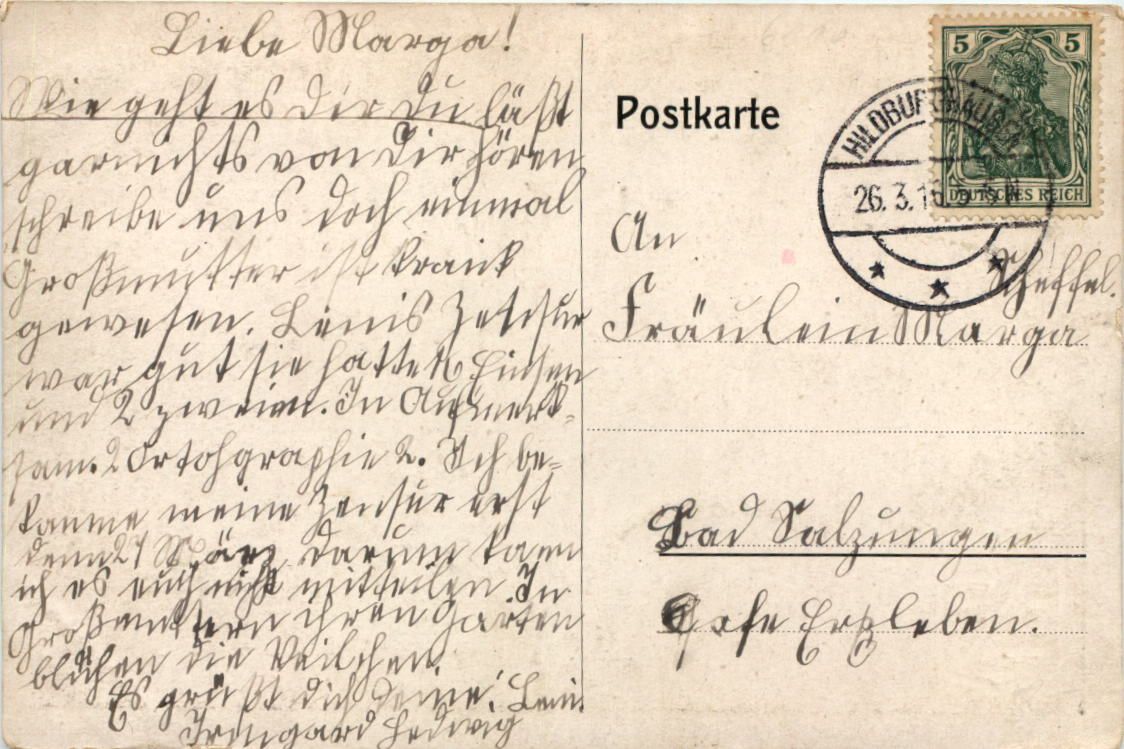 Liebe Marga!
Wie geht es dir du läßt
garnichts von dir hören
schreibe uns doch einmal
Großmutter ist krank
gewesen. Lenis Zensur
war gut sie hatte Einsen
und 2 zweien. In Aufmerk-
sam. 2 Ortohgraphie 2. Ich be-
kamme meine Zensur erst
denn 27 März darum kann
ich es euch nicht mitteilen. In
Großmuttern ihren Garten
blühen die Veilchen.
Es grüßt dich deine: Leni.
Irmgard Hedwig
Postkarte
5 5
DEUTSCHES REICH
HILDBURGHAUSEN
26. 3. 16
An
Fräulein Marga Scheffel.
Bad Salzungen
Cafe Erzleben.